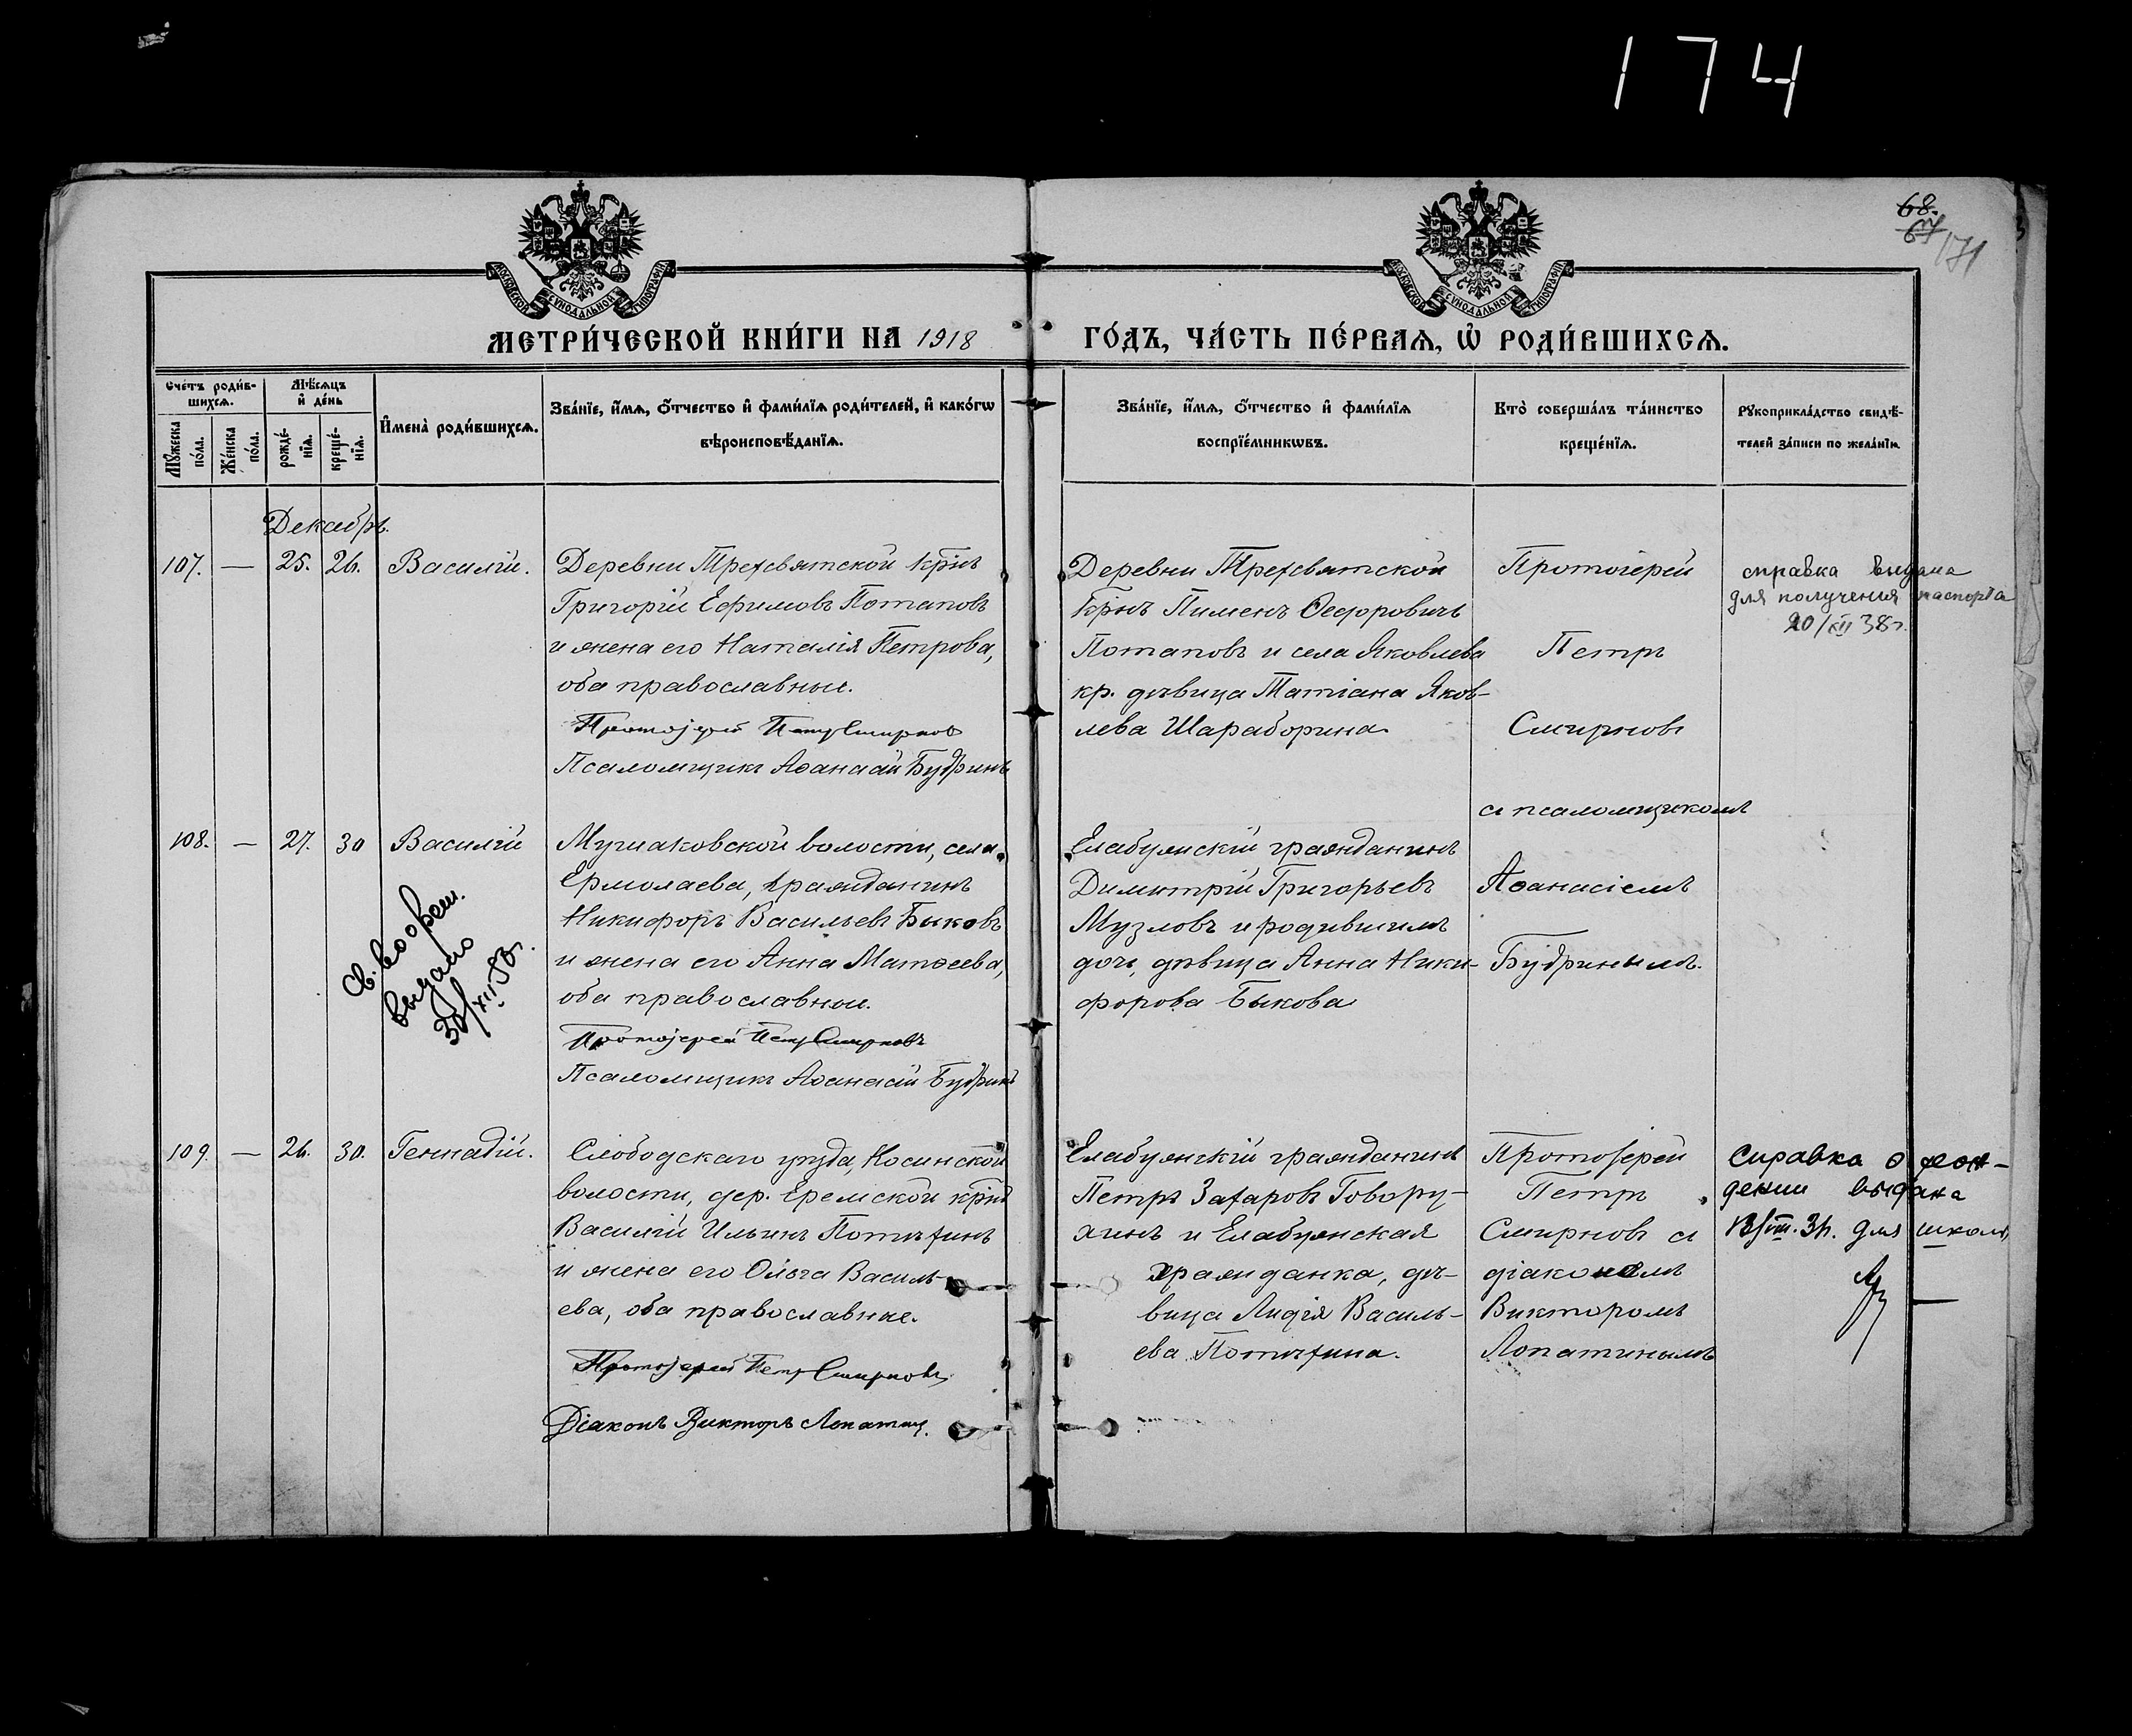 174
68.
171
МОСКОВСКОЙ СѴНОДАЛЬНОЙ ТИПОГРАФІИ
МОСКОВСКОЙ СѴНОДАЛЬНОЙ ТИПОГРАФІИ
МЕТРИ́ЧЕСКОЙ КНИ́ГИ НА 1918 ГО́ДЪ, ЧА́СТЬ ПЕ́РВАѦ, Ѡ РОДИ́ВШИХСѦ.
Счетъ роди́в-
шихсѧ.
Мѣсѧцъ
и де́нь
Мꙋжеска
по́ла.
Же́нска
по́ла.
рожде́-
нїѧ.
креще́-
нїѧ.
И҆мена̀ роди́вшихсѧ.
Зва́нїе, и҆́мѧ, ѻ҆́тчество и҆ фами́лїѧ роди́телей, и҆ како́гѡ
вѣроисповѣ́данїѧ.
Зва́нїе, и҆́мѧ, ѻ҆́тчество и҆ фами́лїѧ
воспрїе́мникѡвъ.
Кто̀ соверша́лъ та́инство
креще́нїѧ.
Рꙋкоприкла́дство свидѣ́-
телей за́писи по жела́нїю
Декабрь.
107. — 25. 26. Василій.
Деревни Трехсвятской крнъ
Григорій Ефимовъ Потаповъ
и жена его Наталія Петрова,
оба православные.
Протоіерей Петръ Смирновъ
Псаломщикъ Аѳанасій Будринъ
Деревни Трехсвятской
крнъ Пименъ Ѳеодоровичъ
Потаповъ и села Яковлева
кр. дѣвица Татіана Яков-
лева Шараборина
Протоіерей
Петръ
Смирновъ
съ псаломщикомъ
Аѳанасіемъ
Будринымъ.
справка выдана
для получения паспорта
20/XII 38г.
108. — 27. 30 Василій
Св. во о рож.
выдано
30/XII
Мушаковской волости, села
Ермолаева, гражданинъ
Никифоръ Васильевъ Быковъ
и жена его Анна Матѳеева,
оба православные.
Протоіерей Петръ Смирновъ
Псаломщикъ Аѳанасій Будринъ
Елабужскій гражданинъ
Димитрій Григорьевъ
Музловъ и родившимъ
дочь, дѣвица Анна Ники-
форова Быкова
109. — 26. 30. Геннадій.
Слободскаго уѣзда, Косинской
волости, дер. Еремской крнъ
Василій Ильинъ Потѣхинъ
и жена его Ольга Василь-
ева, оба православные.
Протоіерей Петръ Смирновъ
Діаконъ Викторъ Лопатинъ.
Елабужскій гражданинъ
Петръ Захаровъ Говору-
хинъ и Елабужская
гражданка, дѣ-
вица Лидія Василь-
ева Потѣхина.
Протоіерей
Петръ
Смирновъ съ
діакономъ
Викторомъ
Лопатинымъ
Справка о рож-
дении выдана
для школы